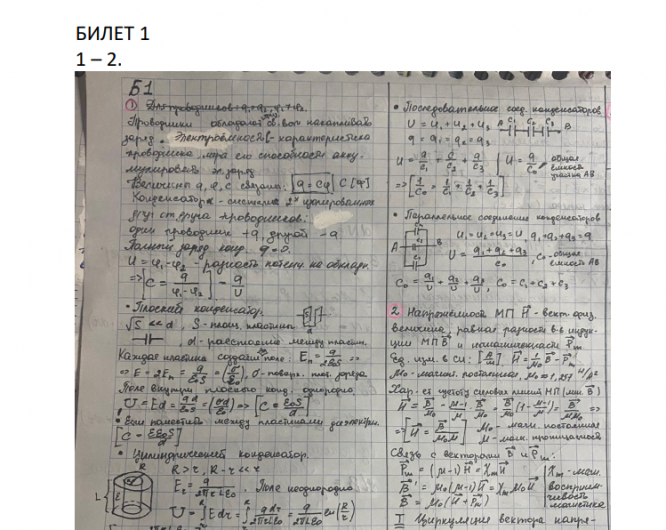 БИЛЕТ 1
1 – 2.
Б1
Проводники обладают св-вом накапливать
заряд. Электроемкость - характеристика
проводника, мера его способности акку-
мулировать эл. заряд.
Величины q, φ, C связаны: q = Cφ
Конденсатор - система 2х изолированных
друг от друга проводников:
один проводник +q, другой -q.
U = φ₁-φ₂ - разность потенц. на обкладк.
=> C = q/(φ₁-φ₂) = q/U
• Плоский конденсатор.
√S << d, S - площ. пластины
d - расстояние между пластин.
Каждая пластина создаёт поле: Eₙ = q/2ε₀S =>
=> E = 2Eₙ = q/ε₀S = (σ/ε₀), σ - поверх. плот. заряда
Поле внутри плоского конд. однородно
U = Ed = qd/ε₀S = (σd/ε₀) => [C = ε₀S/d]
• Если поместить между пластинами диэлектрик
[C = εε₀S/d]
• Цилиндрический конденсатор.
R > r, R - r << r
Поле неоднородно
• Последовательное соед. конденсаторов
U = U₁ + U₂ + U₃ A C₁ C₂ C₃ B
q = q₁ = q₂ = q₃
U = q/C₁ + q/C₂ + q/C₃ U = q/C₀, общая
ёмкость
участка AB
=> [1/C₀ = 1/C₁ + 1/C₂ + 1/C₃]
• Параллельное соединение конденсаторов
U₁ = U₂ = U₃ = U q₁ + q₂ + q₃ = q
U = (q₁ + q₂ + q₃)/C₀, C₀ - общая
ёмкость AB
C₀ = q₁/U + q₂/U + q₃/U C₀ = C₁ + C₂ + C₃
2 Напряжённость МП H - вект. физ.
величина, равная разности в-в индук-
ции МП B и намагниченности Pm
Ед. изм. в СИ: [А/м] H = 1/μ₀ B - Pm
μ₀ - магнит. постоянная
Хар-ет густоту силовых линий МП (лин. B)
μ₀ - магн. постоянная
μ - магн. проницаемость
Связь с векторами B и Pm:
Pm = (μ-1)H = χm H
B' = μ₀(μ-1)H = χm μ₀H
B = μ₀(H + Pm)
χm - маг.
восприим-
чивость
магнетика
I Циркуляция вектора напря-